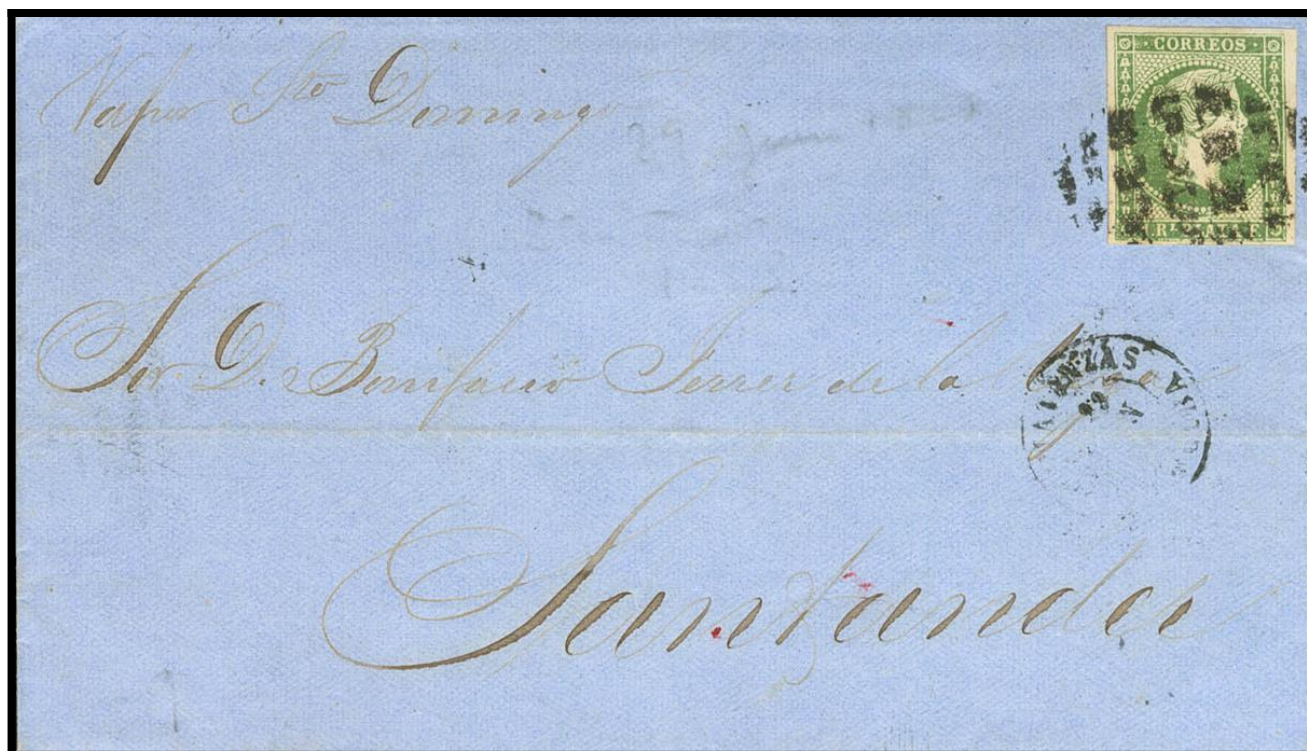 Vapor Sto Domingo
CORREOS
Sor. D. Bonifacio Ferrer de la Vega
Santander